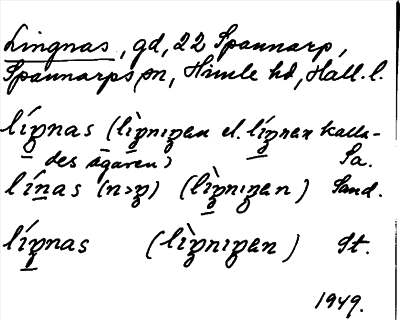 Lingnas, gd, 22 Spannarp,
Spannarps sn, Himle hd, Hall. l.
líŋnas (lìŋnıŋən el. líŋnən kalla-
des ägaren) Sa.
línas (n>ŋ) (lìŋnıŋən) Sand.
líŋnas (lìŋnıŋən) St.
1949.